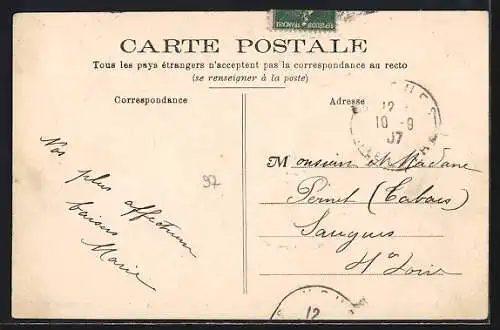 CARTE POSTALE
Tous les pays étrangers n'acceptent pas la correspondance au recto
(se renseigner à la poste)
Correspondance
Adresse
12
10 -9
07
Monsieur et Madame
Pernet (Tabacs)
Saugues
Hte Loire
Nos
plus affectueux
baisers
Marie
97
12